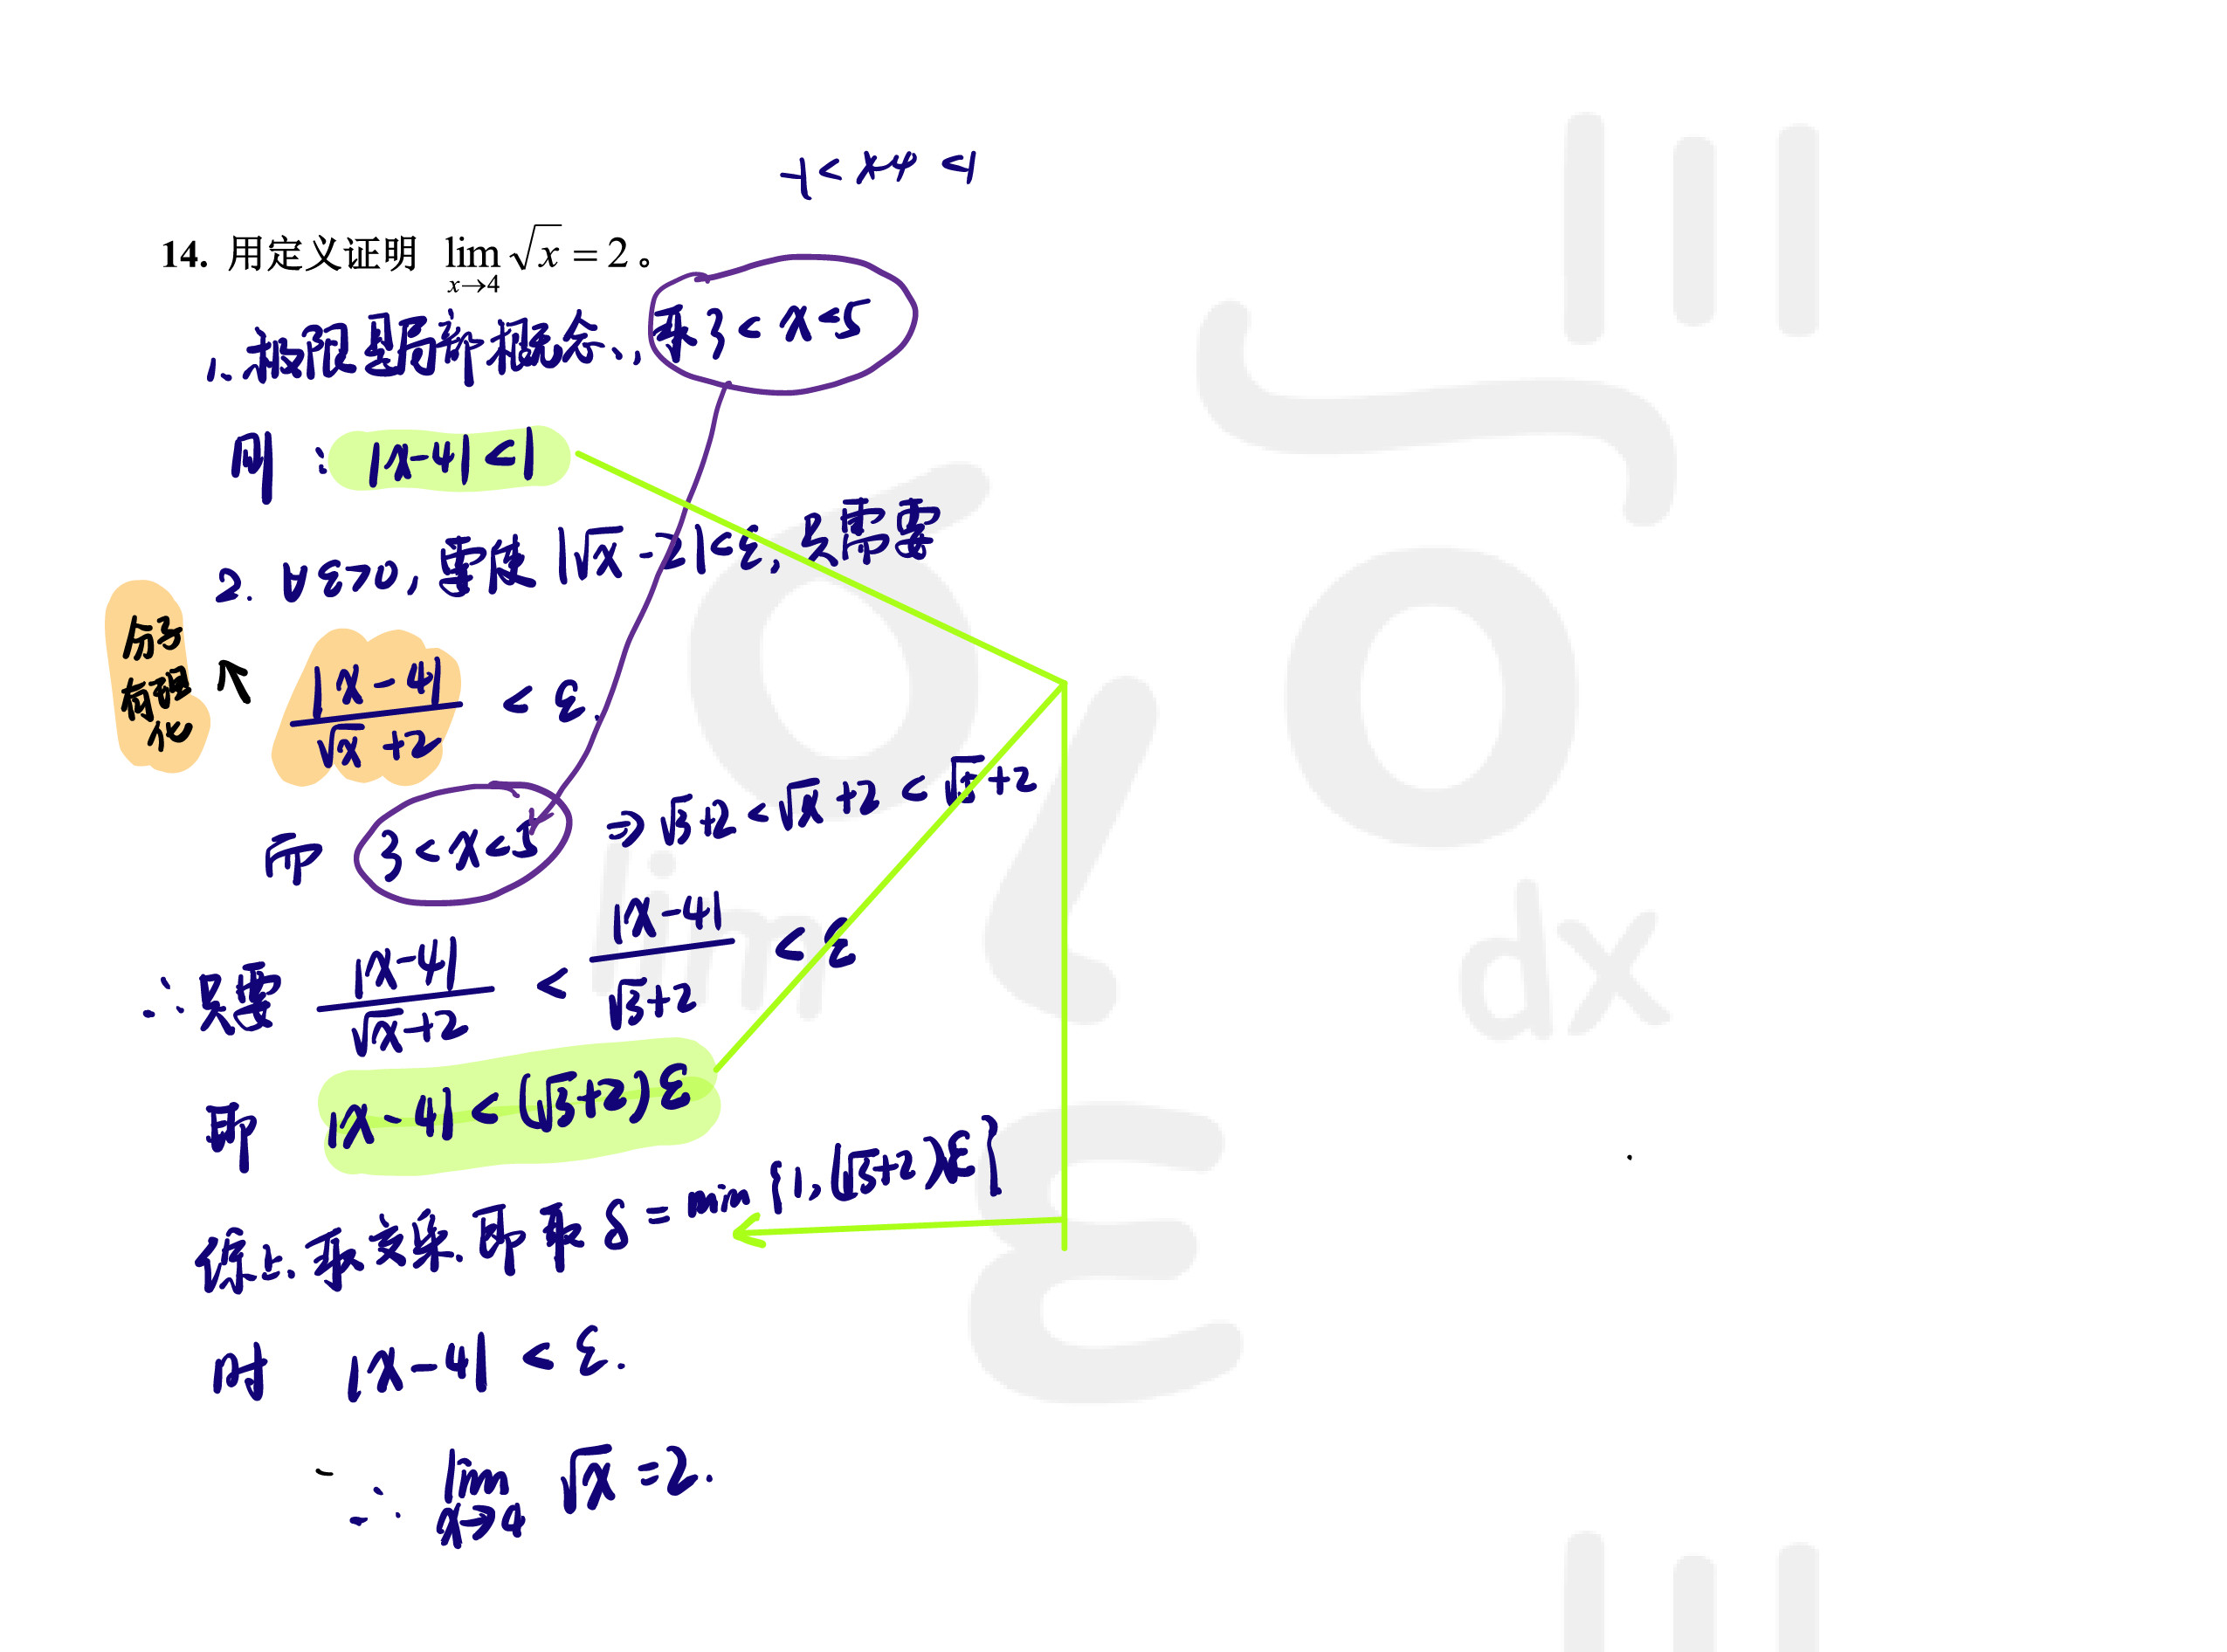 -1 < x-4 < 1
14. 用定义证明 lim_{x→4} √x = 2。
1. 极限是局部概念, 取 3 < x < 5
则: |x-4| < 1
2. ∀ε>0, 要使 |√x - 2| < ε, 只需要
分子有理化 ↖ |x-4| / (√x + 2) < ε.
而 3 < x < 5 ⇒ √3+2 < √x+2 < √5+2
∴ 只要 |x-4| / (√x+2) < |x-4| / (√3+2) < ε
即 |x-4| < (√3+2)ε
综上. 取交集. 即取 δ = min{1, (√3+2)ε}
时 |x-4| < ε.
∴ lim_{x→4} √x = 2.
lim
dx
ε